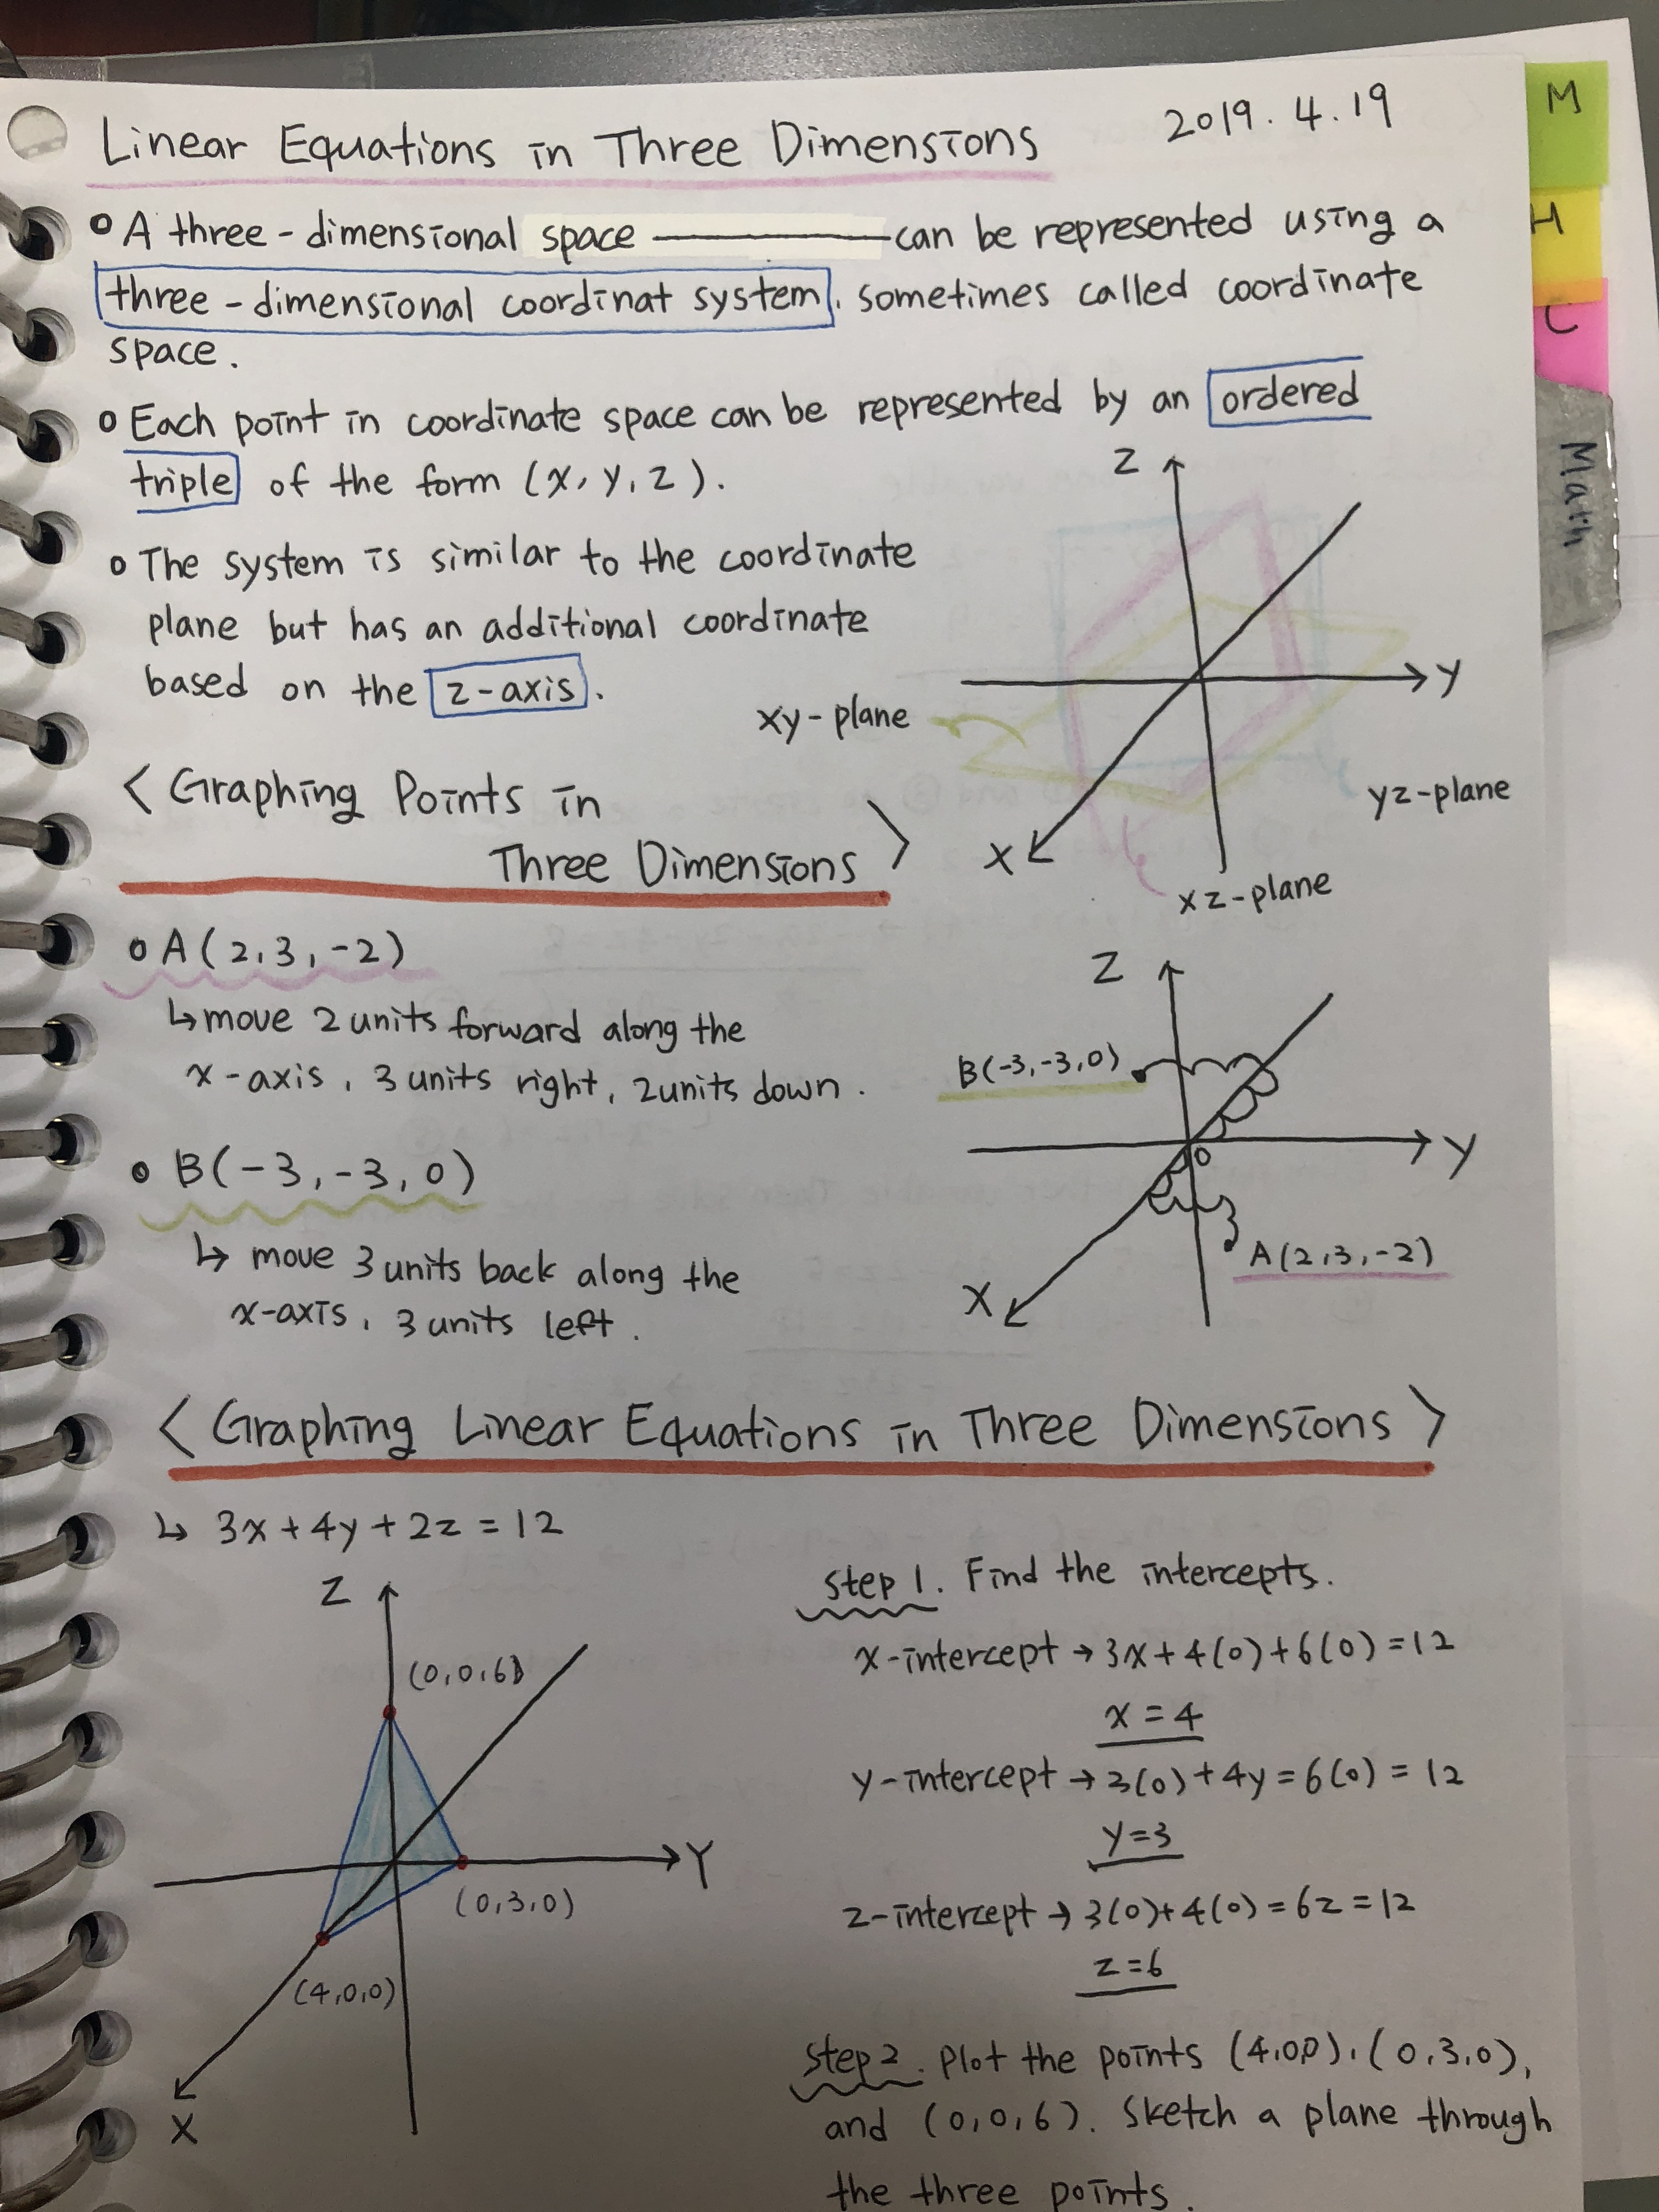 Linear Equations in Three Dimensions 2019. 4. 19
◦ A three-dimensional space ———— can be represented using a
three-dimensional coordinat system, sometimes called coordinate
space.
◦ Each point in coordinate space can be represented by an ordered
triple of the form (x, y, z).
◦ The system is similar to the coordinate
plane but has an additional coordinate
based on the z-axis.
Z
Y
X
xy-plane
yz-plane
xz-plane
< Graphing Points in
Three Dimensions >
◦ A(2,3,-2)
↳ move 2 units forward along the
x-axis, 3 units right, 2 units down.
◦ B(-3,-3,0)
↳ move 3 units back along the
x-axis, 3 units left.
Z
B(-3,-3,0)
Y
O
A(2,3,-2)
X
< Graphing Linear Equations in Three Dimensions >
↳ 3x+4y+2z=12
Z
(0,0,6)
Y
(0,3,0)
(4,0,0)
X
Step 1. Find the intercepts.
x-intercept → 3x+4(0)+6(0)=12
x=4
y-intercept → 3(0)+4y=6(0)=12
y=3
z-intercept → 3(0)+4(0)=6z=12
z=6
Step 2. Plot the points (4,0,0), (0,3,0),
and (0,0,6). Sketch a plane through
the three points.
M
H
C
Math